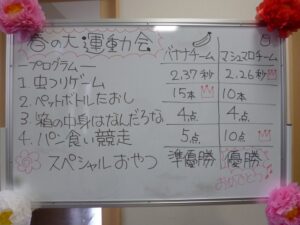 春の大運動会
バナナチーム マシュマロチーム
ープログラムー
1. 虫つりゲーム 2.37秒 2.26秒
2. ペットボトルたおし 15本 10本
3. 箱の中身はなんだろな 4点 4点
4. パン食い競走 5点 10点
スペシャルおやつ 準優勝 優勝
おめでとう